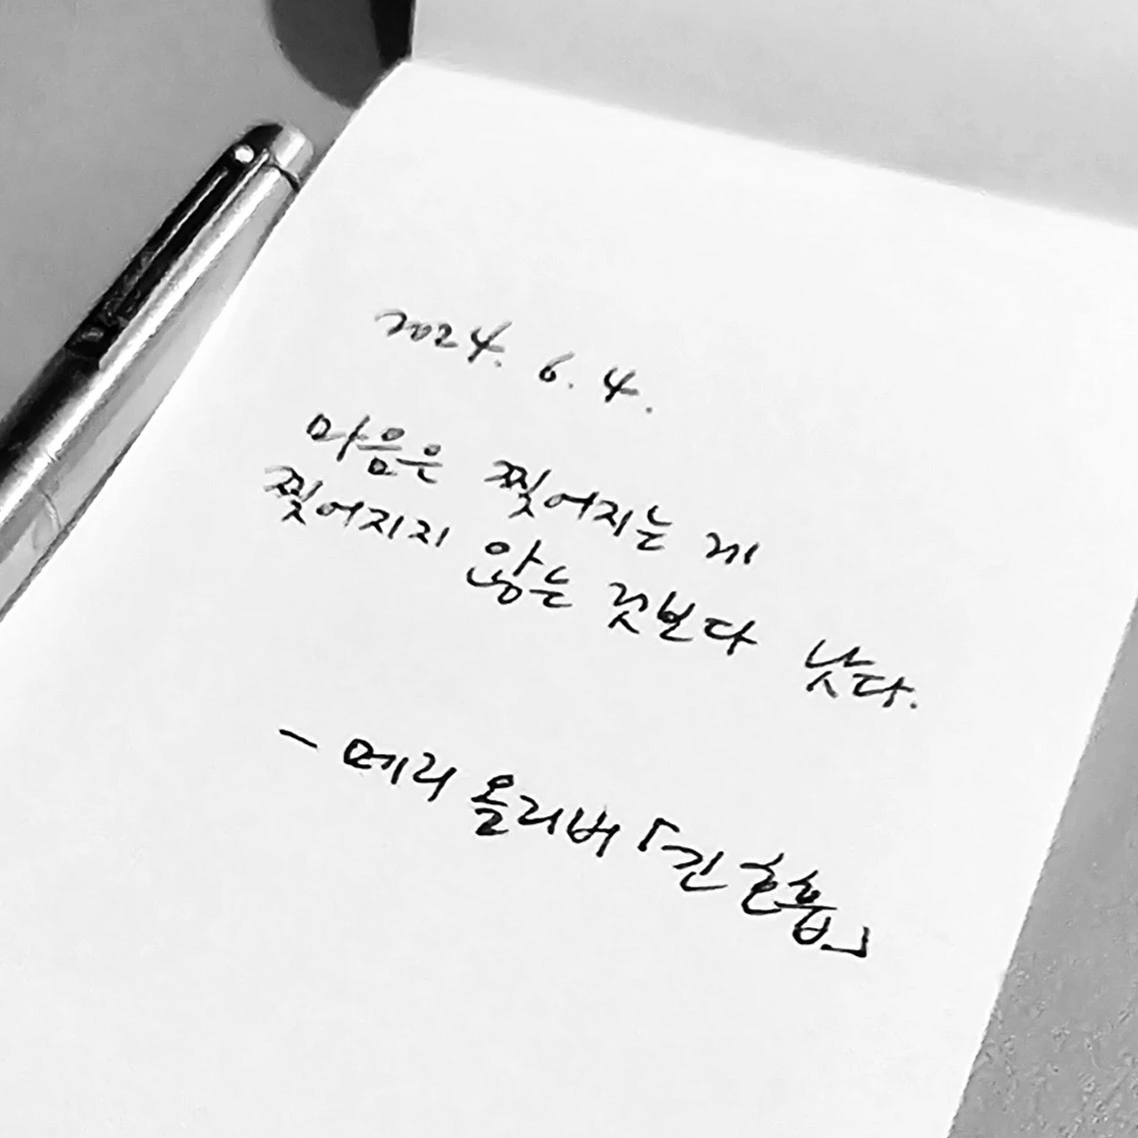 2024. 6. 4.
마음은 찢어지는 게
찢어지지 않는 것보다 낫다.
- 메리 올리버 「긴 호흡」